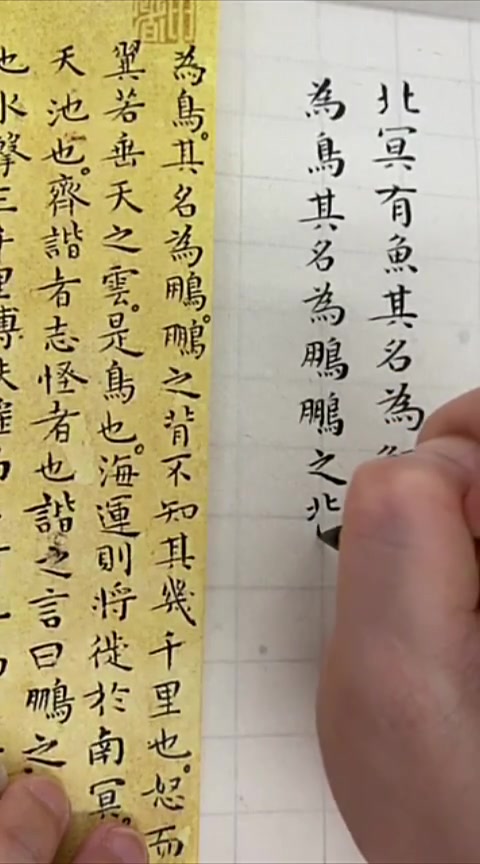 北冥有魚其名為
為鳥其名為鵬鵬之北
為鳥。其名為鵬。鵬之背不知其幾千里也。怒而
翼若垂天之雲。是鳥也。海運則將徙於南冥。
天池也。齊諧者志怪者也諧之言曰鵬之
也水擊三千里摶扶搖